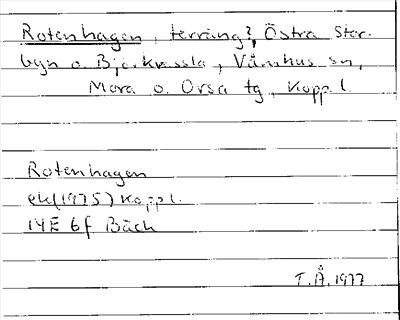 Rotenhagen, terräng?, Östra Stor-
byn o. Björkvassla, Våmhus sn,
Mora o. Orsa tg, Kopp. l.
Rotenhagen
ek(1975) Koppl.
14E 6f Bäck
T.Å. 1977